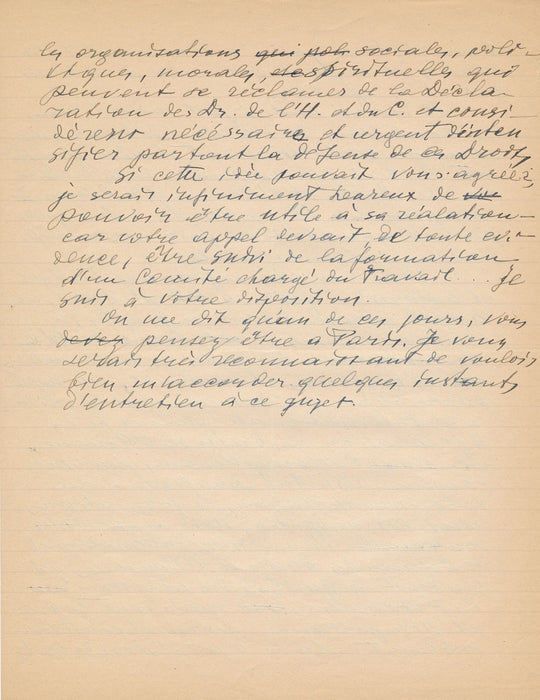 les organisations qui pol sociales, poli-
tiques, morales, etc spirituelles qui
peuvent se réclamer de la Décla-
ration des Dr. de l'H. et du C. et consi-
dèrent nécessaire et urgent d'inten
sifier partout la défense de ces Droits
Si cette idée pouvait vous agréer,
je serais infiniment heureux de
pouvoir être utile à sa réalation –
car votre appel devrait, de toute évi-
dence, être suivi de la formation
d'un Comité chargé du Travail... je
suis à votre disposition.
On me dit qu'un de ces jours, vous
devez pensez être à Paris. Je vous
serais très reconnaissant de vouloir
bien m'accorder quelques instants
d'entretien à ce sujet.